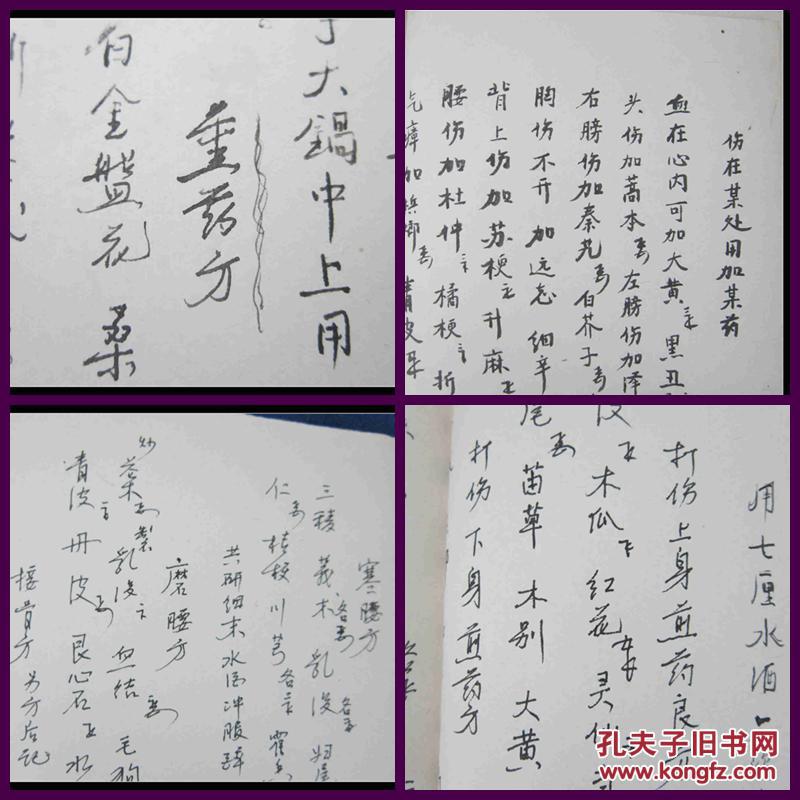 于大锅中上用
重药方
白金盤花 桑
伤在某处用加某药
血在心内可加大黄 黑丑
头伤加蒿本 左膀伤加泽
右膀伤加秦艽 白芥子
胸伤不开加远志 细辛
背上伤加苏梗 升麻
腰伤加杜仲 橘梗 折
气瘴加槟榔 青皮
寒腰方
三稜 莪术 各 乳没 归尾
仁 桔梗 川芎 各 霍
共研细末 水酒冲服
磨腰方
炒 製乳没 血结 毛狗
青皮 丹皮 良心石 水
接骨方 另方后记
用七厘水酒
打伤上身煎药良方
皮 木瓜 红花 灵仙
尾 茵草 木别 大黄
打伤下身煎药方
孔夫子旧书网
www.kongfz.com